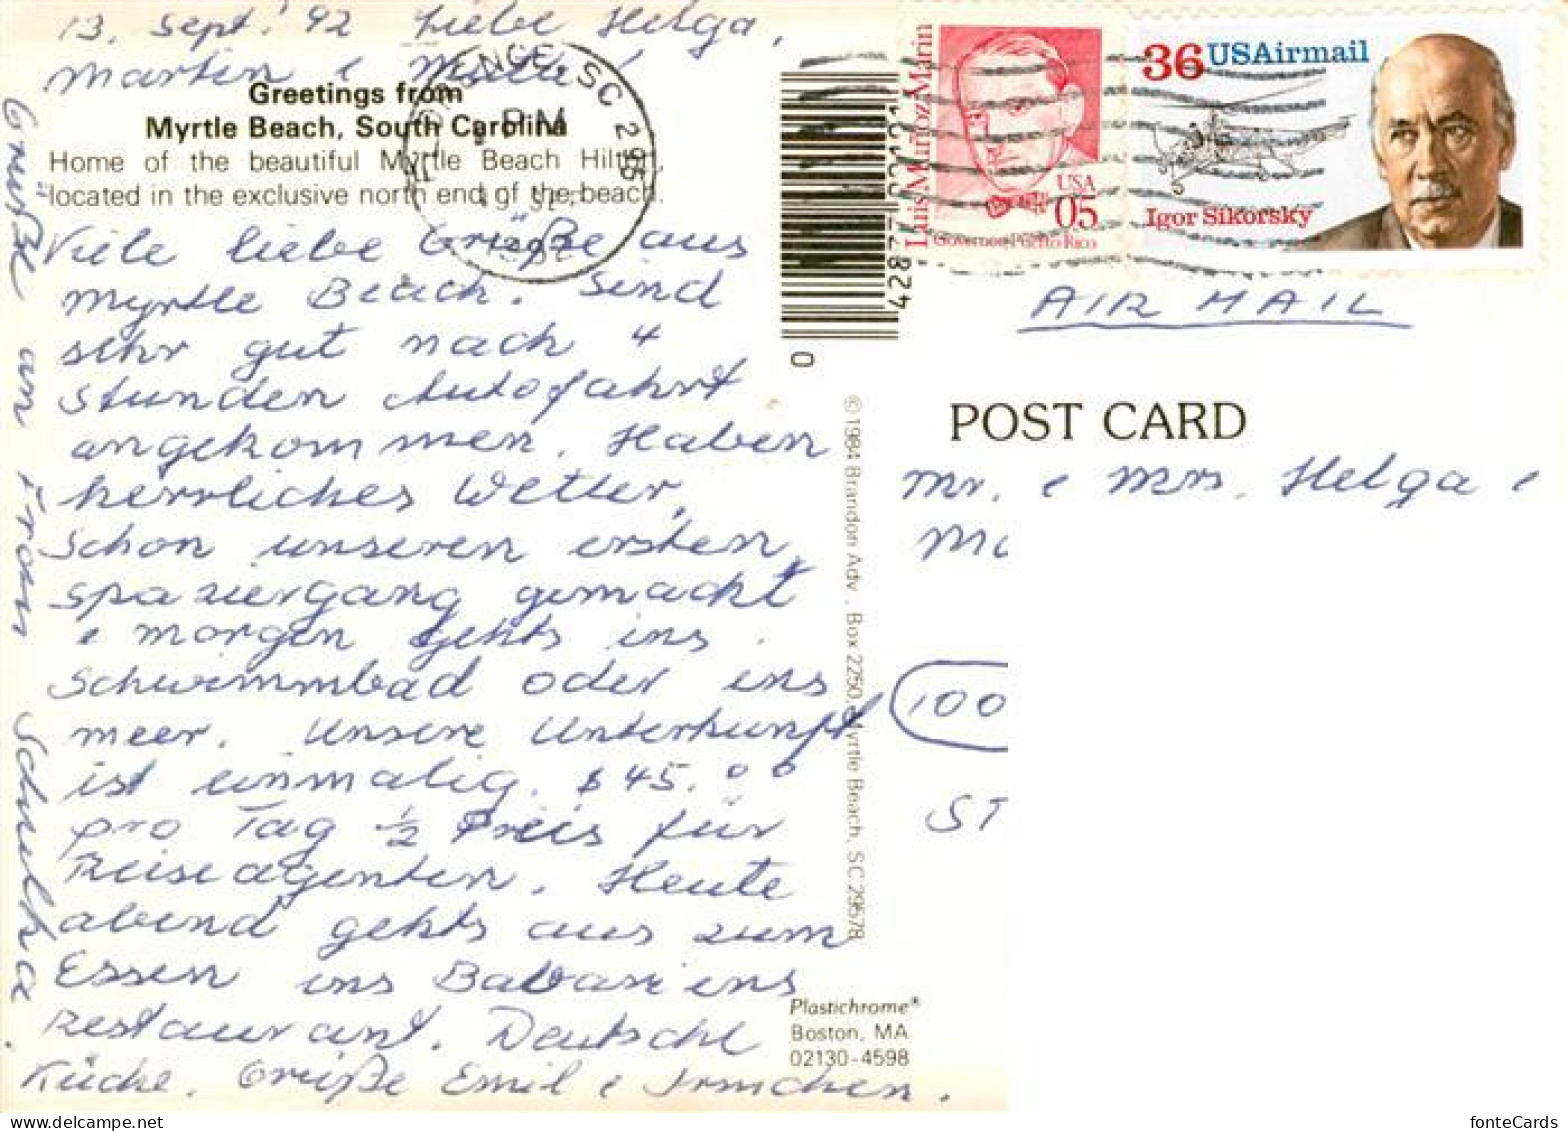 13. Sept. 92 Liebe Helga,
Martin e
Greetings from
Myrtle Beach, South Carolina
Home of the beautiful Myrtle Beach Hilton,
located in the exclusive north end of the beach.
Viele liebe Grüße aus
Myrtle Beach. Sind
sehr gut nach 4
Stunden Autofahrt
angekommen. Haben
herrliches Wetter,
Schon unseren ersten
spaziergang gemacht
e morgen gehts ins
Schwimmbad oder ins
meer. Unsere Unterkunft
ist einmalig. $45.00
pro Tag 1/2 Preis für
Reiseagenten. Heute
abend gehts aus zum
Essen ins
Restaurant. Deutsche
Küche. Grüße Emil e Irmchen.
Grüße an Frau Schulka.
FLORENCE, SC 295
PM
1992
0
42877 22121
© 1984 Brandon Adv. Box 2250, Myrtle Beach, SC 29578
Plastichrome®
Boston, MA
02130-4598
Luis Muñoz Marín
USA
05
Governor, Puerto Rico
36 USAirmail
Igor Sikorsky
AIR MAIL
POST CARD
Mr. e Mrs. Helga e
100
ST
fonteCards